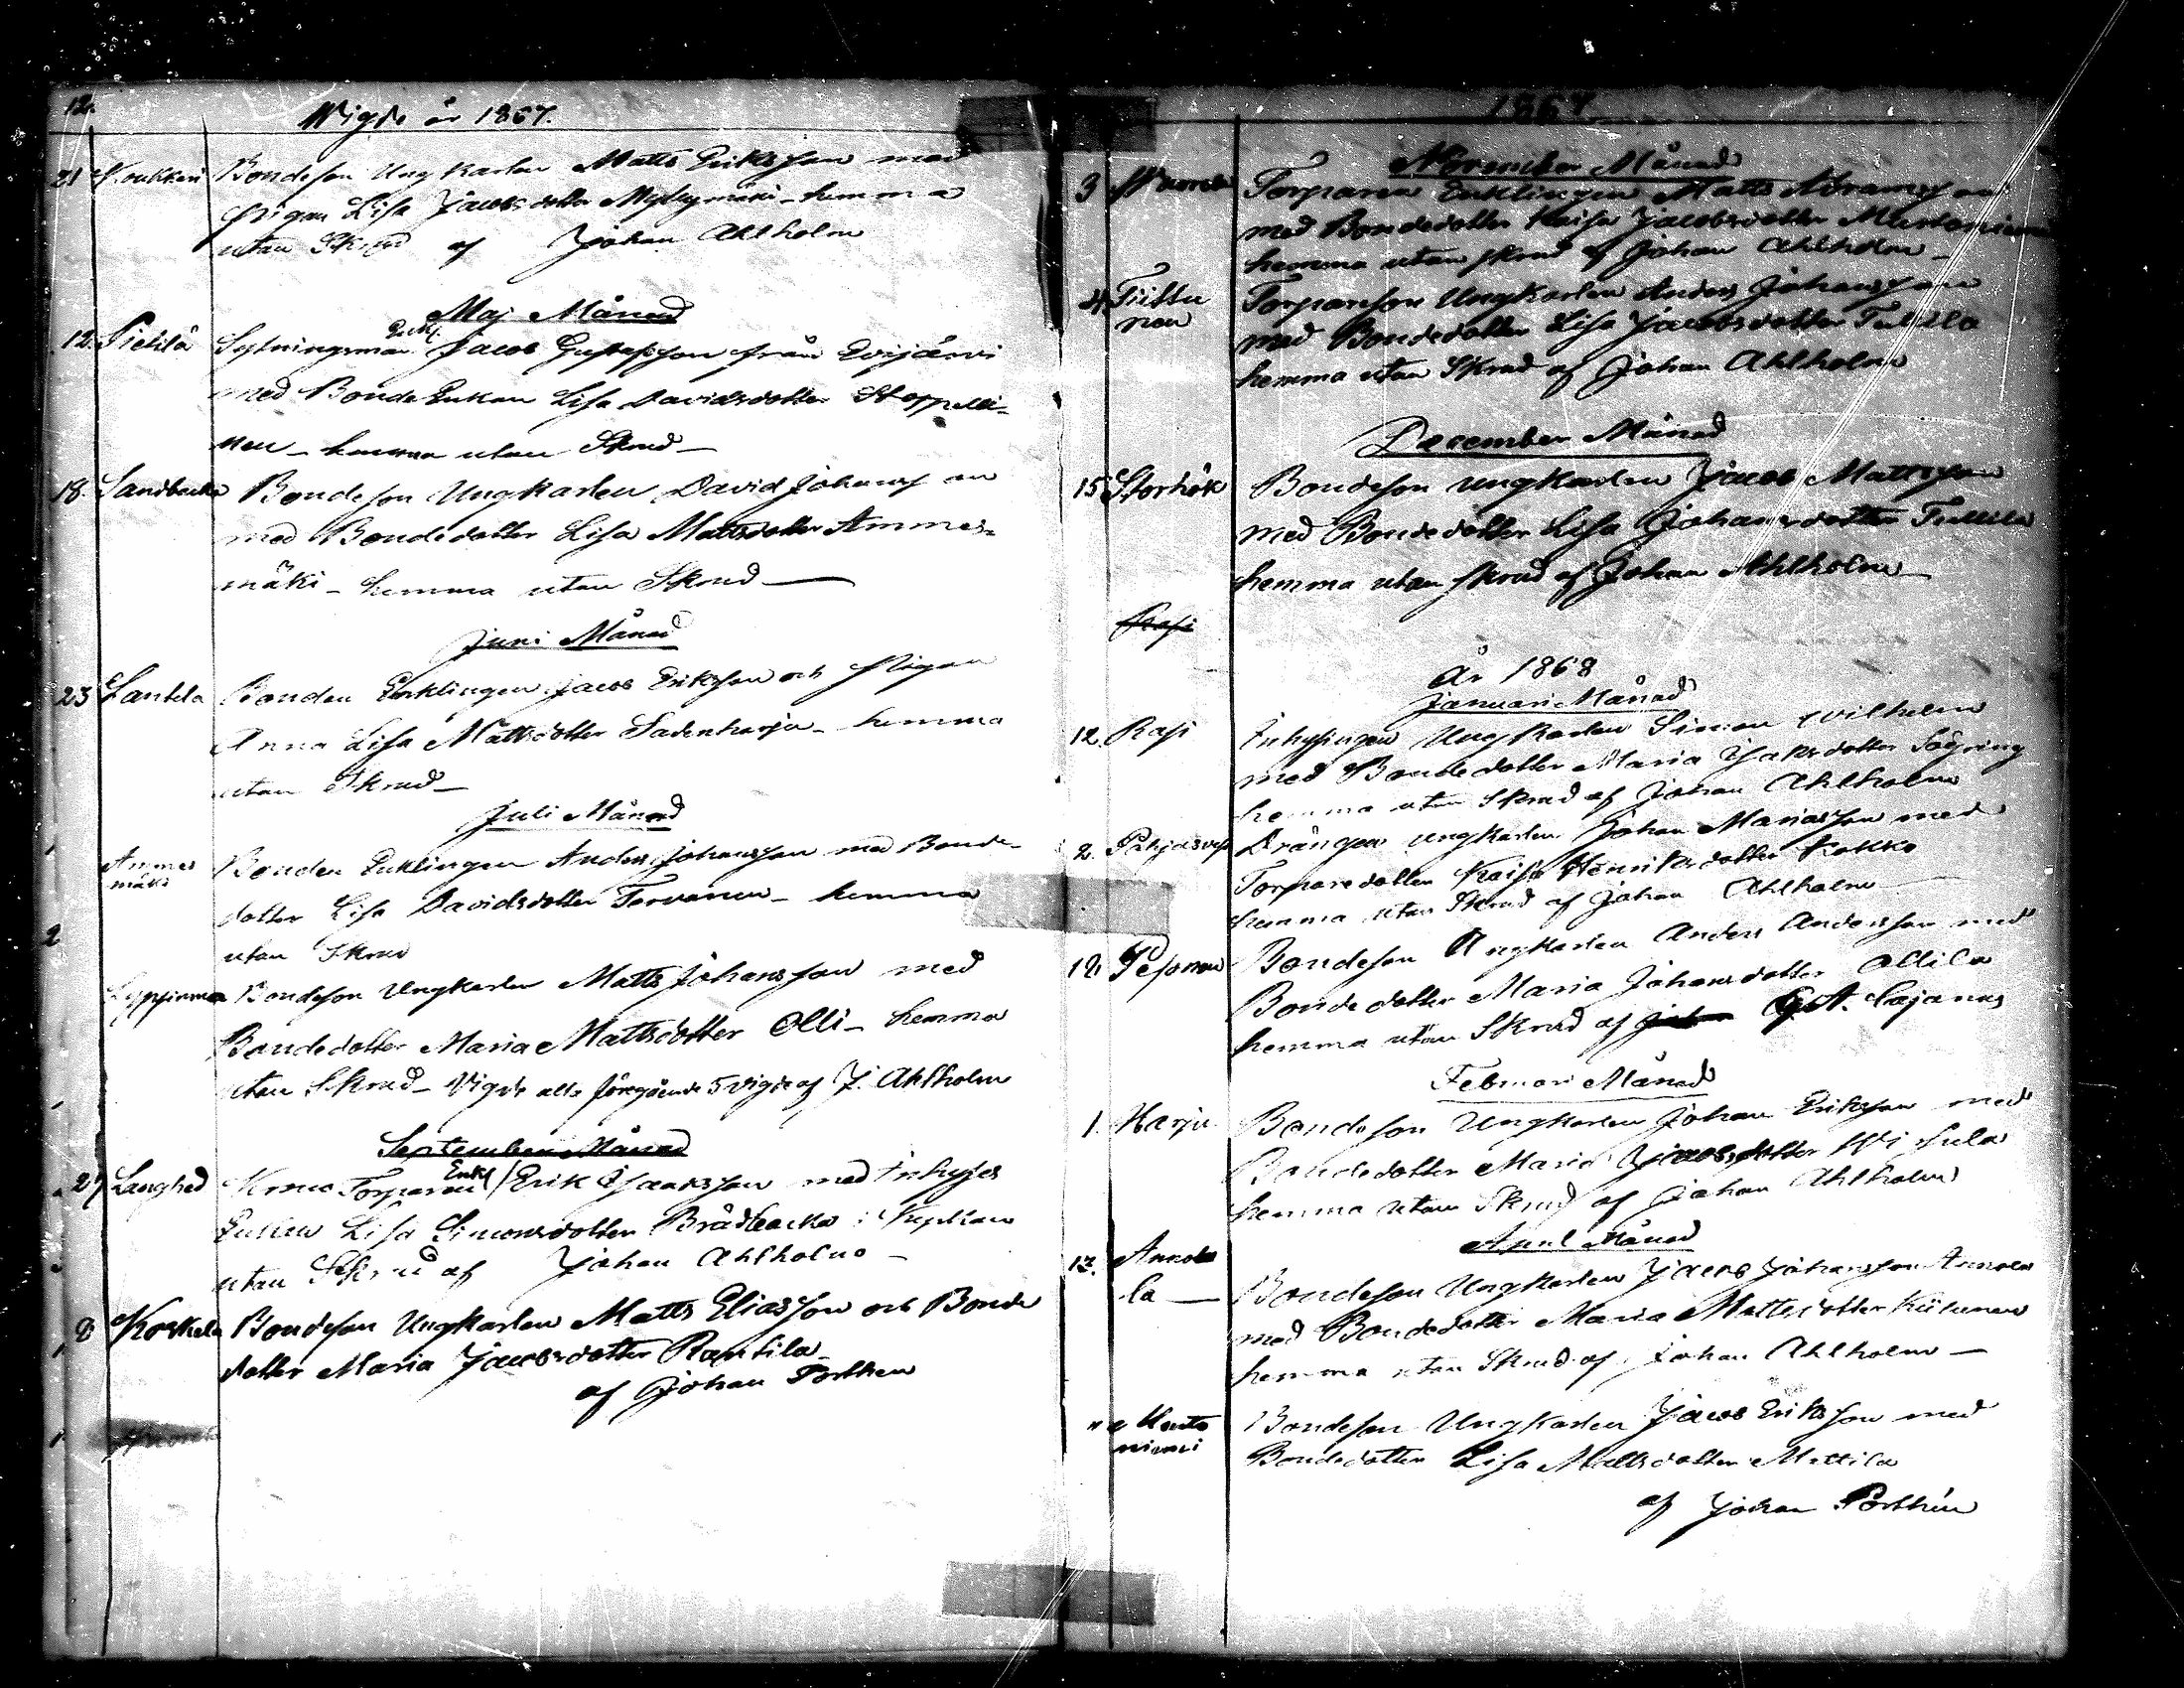 12.
Wigde år 1867.
21 Koukkari Bondeson Ungkarlen Matts Eriksson med
Pigan Lisa Jacobsdotter Myllymäki - hemma
utan Skrud af Johan Ahlholm
Maj Månad
12. Pietilä Sytningsman Enkl. Jacob Gustafsson från Evijärvi
med Bonde Enkan Lisa Davidsdotter
nen - hemma utan Skrud -
18. Sandbacka Bondeson Ungkarlen David Johansson
med Bondedotter Lisa Mattsdotter Ammes-
mäki - hemma utan Skrud -
Juni Månad
23 Lantela Bonden Enklingen Jacob Eriksson och Pigan
Anna Lisa Mattsdotter Sadenharju - hemma
utan Skrud -
Juli Månad
Ammes Bonden Enklingen Anders Johansson med Bonde-
mäki dotter Lisa Davidsdotter Tervonen - hemma
2
utan Skrud
Bondeson Ungkarlen Matts Johansson med
Bondedotter Maria Mattsdotter Olli - hemma
utan Skrud - Vigde alla föregående 5 vigde af J. Ahlholm
September Månad
27 Langhed Torparen Enkl. Erik Jacobsson med Inhyses
Enkan Lisa Simonsdotter Brådbacka
utan Skrud af Johan Ahlholm -
8 Korkela Bondeson Ungkarlen Matts Eliasson och Bonde
dotter Maria Jacobsdotter Rantila
af Johan Porthen
1867
November Månad
3 Torparen Enklingen Matts Abramsson
med Bondedotter Kaisa Jacobsdotter
hemma utan skrud af Johan Ahlholm -
4 Tiittu Torparson Ungkarlen Anders Johansson
nen med Bondedotter Lisa Jacobsdotter Tullila
hemma utan Skrud af Johan Ahlholm
December Månad
15 Storhök Bondeson Ungkarlen Jacob Mattsson
med Bondedotter Lisa Johansdotter Tullila
hemma utan skrud af Johan Ahlholm -
Rasi
År 1868
Januari Månad
12. Rasi Inhysingen Ungkarlen Simon Wilhelm
med Bondedotter Maria Jakobsdotter
hemma utan Skrud af Johan Ahlholm
2. Drängen Ungkarlen Johan Mariasson med
Torparedotter Kaisa Henriksdotter Kokko
hemma utan Skrud af Johan Ahlholm
12 Pesonen Bondeson Ungkarlen Anders Andersson med
Bondedotter Maria Johansdotter Ollila
hemma utan Skrud af G. A. Cajanus
Februari Månad
1. Harju Bondeson Ungkarlen Johan Eriksson med
Bondedotter Maria Jacobsdotter
hemma utan Skrud af Johan Ahlholm
April Månad
13. Annola
la - Bondeson Ungkarlen Jacob Johansson Annola
med Bondedotter Maria Mattsdotter Kiilunen
hemma utan Skrud af Johan Ahlholm -
" Bondeson Ungkarlen Jacob Eriksson med
niemi Bondedotter Lisa Mattsdotter Mattila
af Johan Porthén